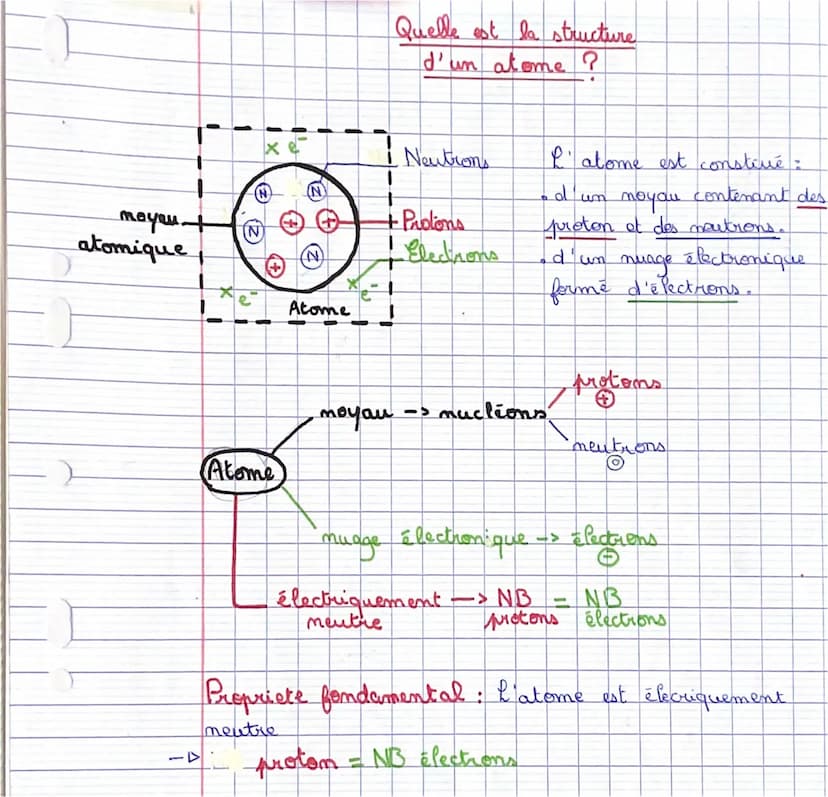 Quelle est la structure
d'un atome ?
x e-
Neutrons
N
N
noyau
atomique
+
+
Protons
N
N
+
Electrons
x e-
x e-
Atome
L'atome est constiué :
. d'un noyau contenant des
proton et des neutrons.
. d'un nuage électronique
formé d'électrons.
protons
+
noyau -> nucléons
neutrons
0
Atome
nuage électronique -> électrons
-
électriquement -> NB = NB
neutre protons électrons
Propriete fondamental : L'atome est élecriquement
neutre
-> proton = NB électrons